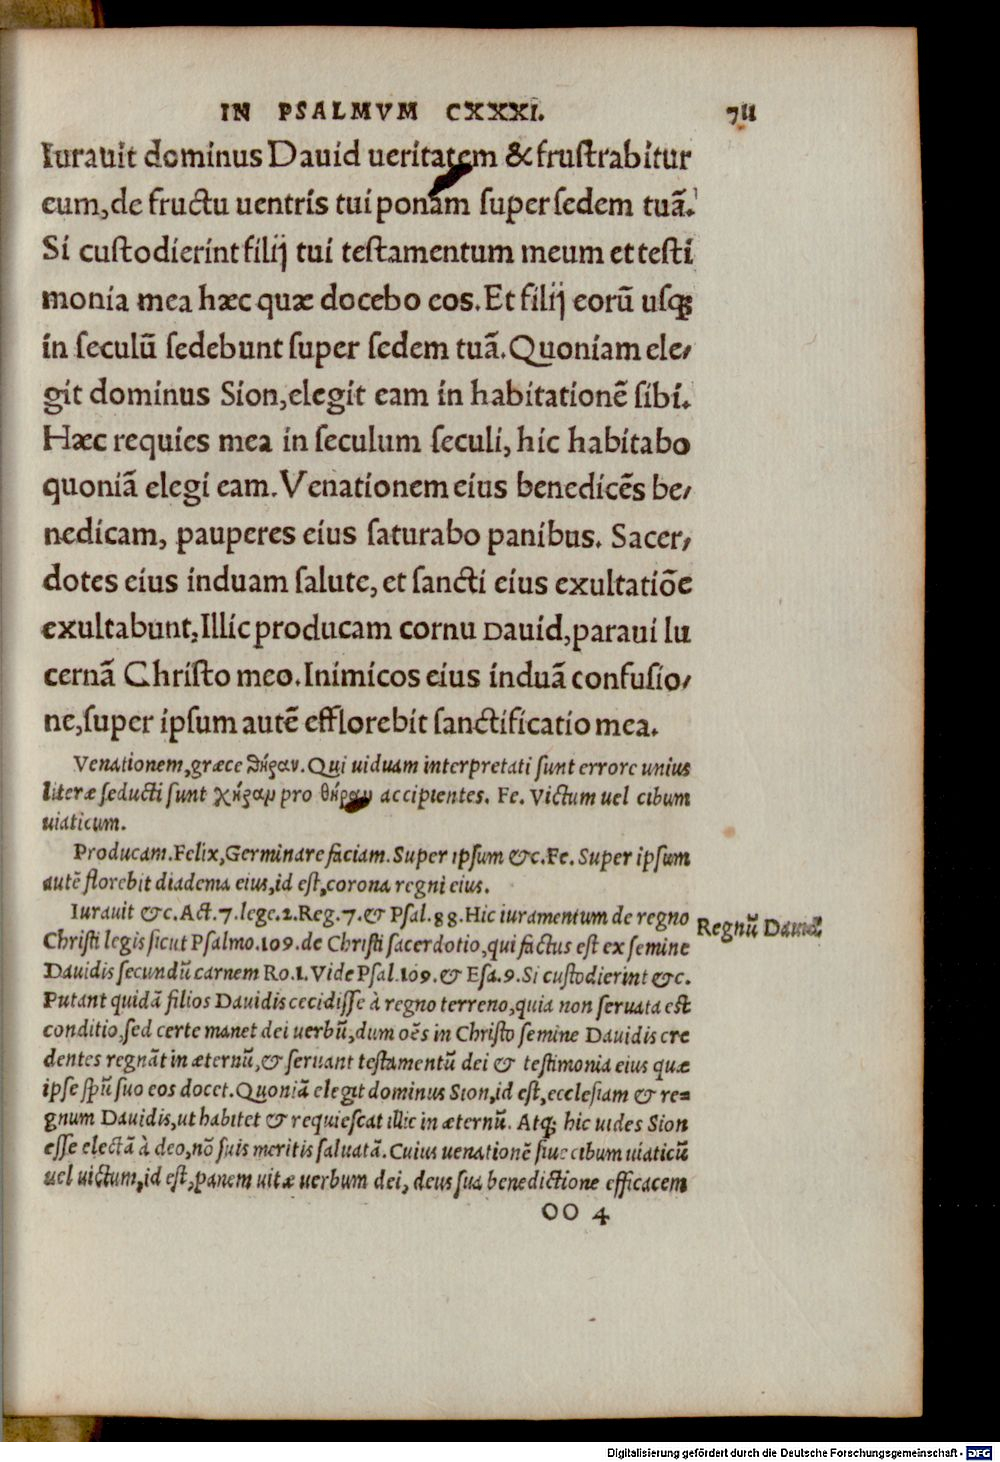 IN PSALMVM CXXXI. 711
Iurauit dominus Dauid ueritatem & frustrabitur
eum, de fructu uentris tui ponam super sedem tuã.
Si custodierint filij tui testamentum meum et testi
monia mea hæc quæ docebo eos. Et filij eorũ usq;
in seculũ sedebunt super sedem tuã. Quoniam ele/
git dominus Sion, elegit eam in habitationẽ sibi.
Hæc requies mea in seculum seculi, hic habitabo
quoniã elegi eam. Venationem eius benedicẽs be/
nedicam, pauperes eius saturabo panibus. Sacer/
dotes eius induam salute, et sancti eius exultatiõe
exultabunt, Illic producam cornu Dauid, paraui lu
cernã Christo meo. Inimicos eius induã confusio/
ne, super ipsum autẽ efflorebit sanctificatio mea.
Venationem, græce θήραν. Qui uiduam interpretati sunt errore unius
literæ seducti sunt χήραμ pro θήραμ accipientes. Fe. Victum uel cibum
uiaticum.
Producam. Felix, Germinare faciam. Super ipsum &c. Fe. Super ipsum
autẽ florebit diadema eius, id est, corona regni eius.
Iurauit &c. Act. 7. lege. 2. Reg. 7. & Psal. 88. Hic iuramentum de regno
Regnũ Dauid.
Christi legis sicut Psalmo. 109. de Christi sacerdotio, qui factus est ex semine
Dauidis secundũ carnem Ro. 1. Vide Psal. 109. & Esa. 9. Si custodierint &c.
Putant quidã filios Dauidis cecidisse à regno terreno, quia non seruata est
conditio, sed certe manet dei uerbũ, dum oẽs in Christo semine Dauidis cre
dentes regnãt in æternũ, & seruant testamentũ dei & testimonia eius quæ
ipse spũ suo eos docet. Quoniã elegit dominus Sion, id est, ecclesiam & re=
gnum Dauidis, ut habitet & requiescat illic in æternũ. Atq; hic uides Sion
esse electã à deo, nõ suis meritis saluatã. Cuius uenationẽ siue cibum uiaticũ
uel uictum, id est, panem uitæ uerbum dei, deus sua benedictione efficacem
OO 4
Digitalisierung gefördert durch die Deutsche Forschungsgemeinschaft - DFG